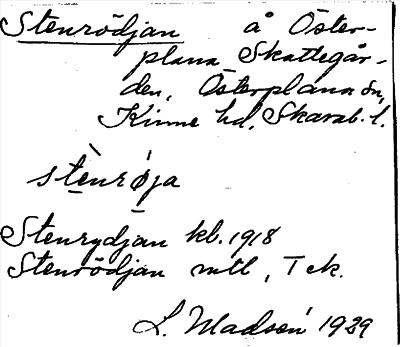 Stenrödjan å Öster-
plana Skattegår-
den, Österplana sn,
Kinne hd, Skarab. l.
stènrø̀ja
Stenrydjan kb. 1918
Stenrödjan mtl, Tek.
L. Madsén 1929